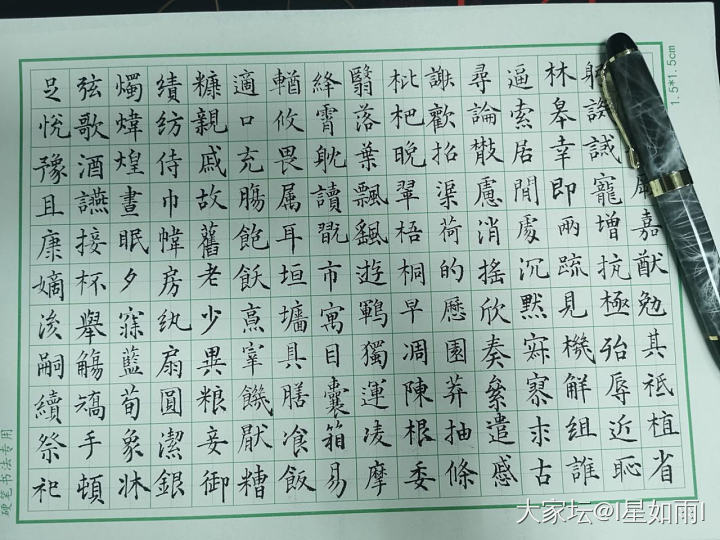 嘉猷勉其祗植省
躬譏誡寵增抗極殆辱近恥
林皋幸即兩疏見機解組誰
逼索居閒處沉默寂寥求古
尋論散慮消搖欣奏累遣慼
謝歡招渠荷的歷園莽抽條
枇杷晚翠梧桐早凋陳根委
翳落葉飄颻遊鵾獨運凌摩
絳霄耽讀翫市寓目囊箱易
輶攸畏属耳垣墻具膳飡飯
適口充腸飽飫烹宰饑厭糟
糠親戚故舊老少異粮妾御
績紡侍巾幃房紈扇圓潔銀
燭煒煌晝眠夕寐藍荀象牀
弦歌酒讌接杯舉觴矯手頓
足悅豫且康嫡後嗣續祭祀
1.5*1.5cm
硬笔书法专用
大家坛@l星如雨l